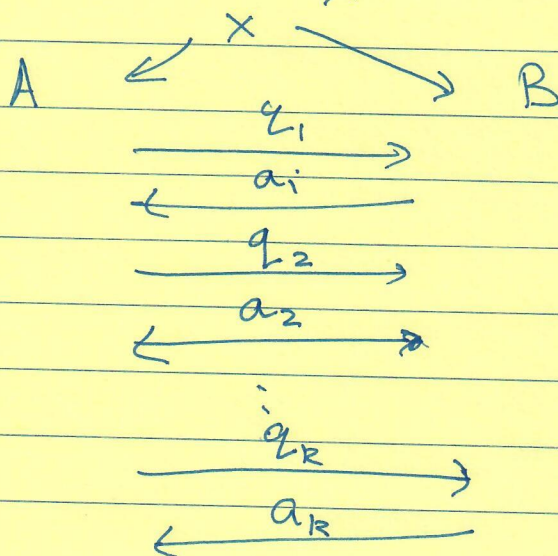 x
A B
q1
ai
q2
a2
⋮
qk
ak